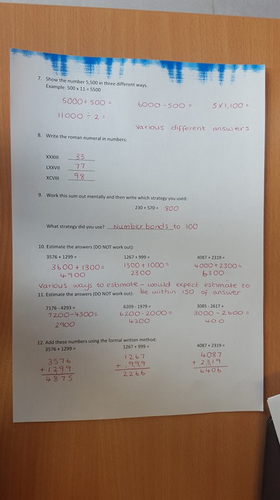 7. Show the number 5,500 in three different ways.
Example: 500 x 11 = 5500
5000+500= 6000-500= 5x1,100=
11000÷2=
Various different answers
8. Write the roman numeral in numbers:
XXXIII 33
LXXVII 77
XCVIII 98
9. Work this sum out mentally and then write which strategy you used:
230 + 570 = 800
What strategy did you use? Number bonds to 100
10. Estimate the answers (DO NOT work out):
3576 + 1299 = 1267 + 999 = 4087 + 2319 =
3600+1300= 1300+1000= 4000+2300=
4900 2300 6300
Various ways to estimate - would expect estimate to
be within 150 of answer
11. Estimate the answers (DO NOT work out):
7176 - 4293 = 6209 - 1979 = 3081 - 2617 =
7200-4300= 6200-2000= 3000-2600=
2900 4200 400
12. Add these numbers using the formal written method:
3576 + 1299 = 1267 + 999 = 4087 + 2319 =
3576 1267 4087
+1299 + 999 +2319
4875 2266 6406